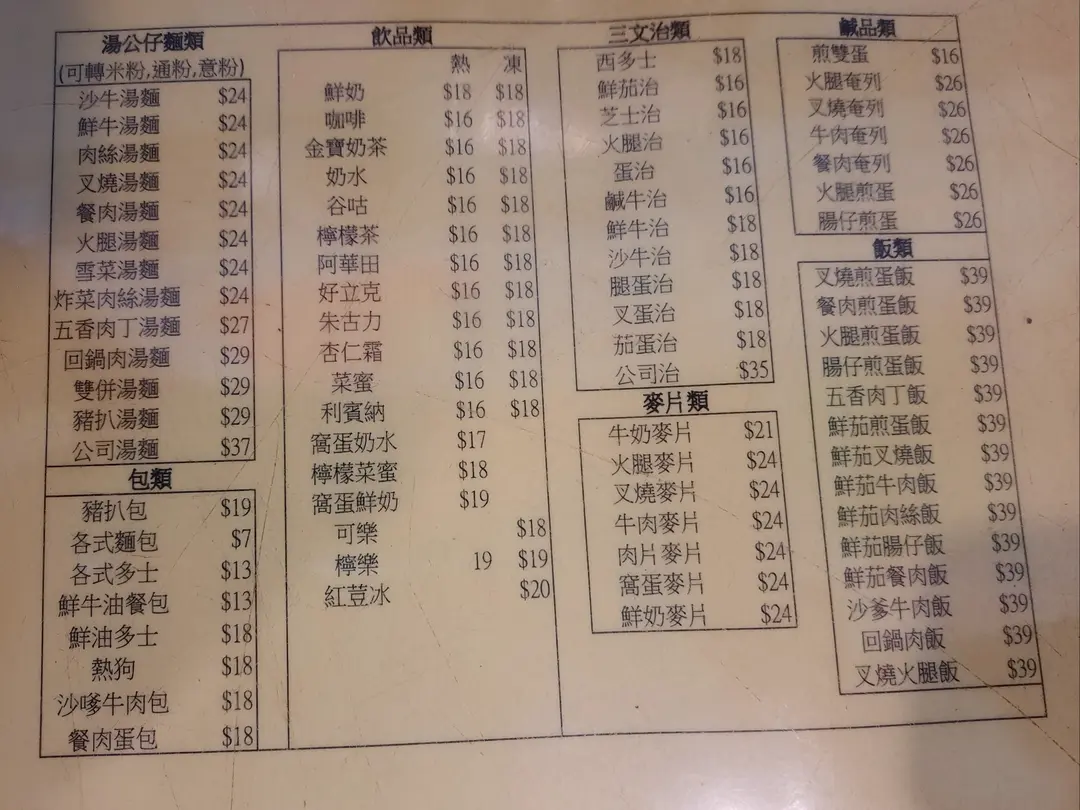 湯公仔麵類
(可轉米粉,通粉,意粉)
沙牛湯麵 $24
鮮牛湯麵 $24
肉絲湯麵 $24
叉燒湯麵 $24
餐肉湯麵 $24
火腿湯麵 $24
雪菜湯麵 $24
炸菜肉絲湯麵 $24
五香肉丁湯麵 $27
回鍋肉湯麵 $29
雙併湯麵 $29
豬扒湯麵 $29
公司湯麵 $37
包類
豬扒包 $19
各式麵包 $7
各式多士 $13
鮮牛油餐包 $13
鮮油多士 $18
熱狗 $18
沙嗲牛肉包 $18
餐肉蛋包 $18
飲品類
熱 凍
鮮奶 $18 $18
咖啡 $16 $18
金寶奶茶 $16 $18
奶水 $16 $18
谷咕 $16 $18
檸檬茶 $16 $18
阿華田 $16 $18
好立克 $16 $18
朱古力 $16 $18
杏仁霜 $16 $18
菜蜜 $16 $18
利賓納 $16 $18
窩蛋奶水 $17
檸檬菜蜜 $18
窩蛋鮮奶 $19
可樂 $18
檸樂 19 $19
紅荳冰 $20
三文治類
西多士 $18
鮮茄治 $16
芝士治 $16
火腿治 $16
蛋治 $16
鹹牛治 $16
鮮牛治 $18
沙牛治 $18
腿蛋治 $18
叉蛋治 $18
茄蛋治 $18
公司治 $35
麥片類
牛奶麥片 $21
火腿麥片 $24
叉燒麥片 $24
牛肉麥片 $24
肉片麥片 $24
窩蛋麥片 $24
鮮奶麥片 $24
鹹品類
煎雙蛋 $16
火腿奄列 $26
叉燒奄列 $26
牛肉奄列 $26
餐肉奄列 $26
火腿煎蛋 $26
腸仔煎蛋 $26
飯類
叉燒煎蛋飯 $39
餐肉煎蛋飯 $39
火腿煎蛋飯 $39
腸仔煎蛋飯 $39
五香肉丁飯 $39
鮮茄煎蛋飯 $39
鮮茄叉燒飯 $39
鮮茄牛肉飯 $39
鮮茄肉絲飯 $39
鮮茄腸仔飯 $39
鮮茄餐肉飯 $39
沙爹牛肉飯 $39
回鍋肉飯 $39
叉燒火腿飯 $39